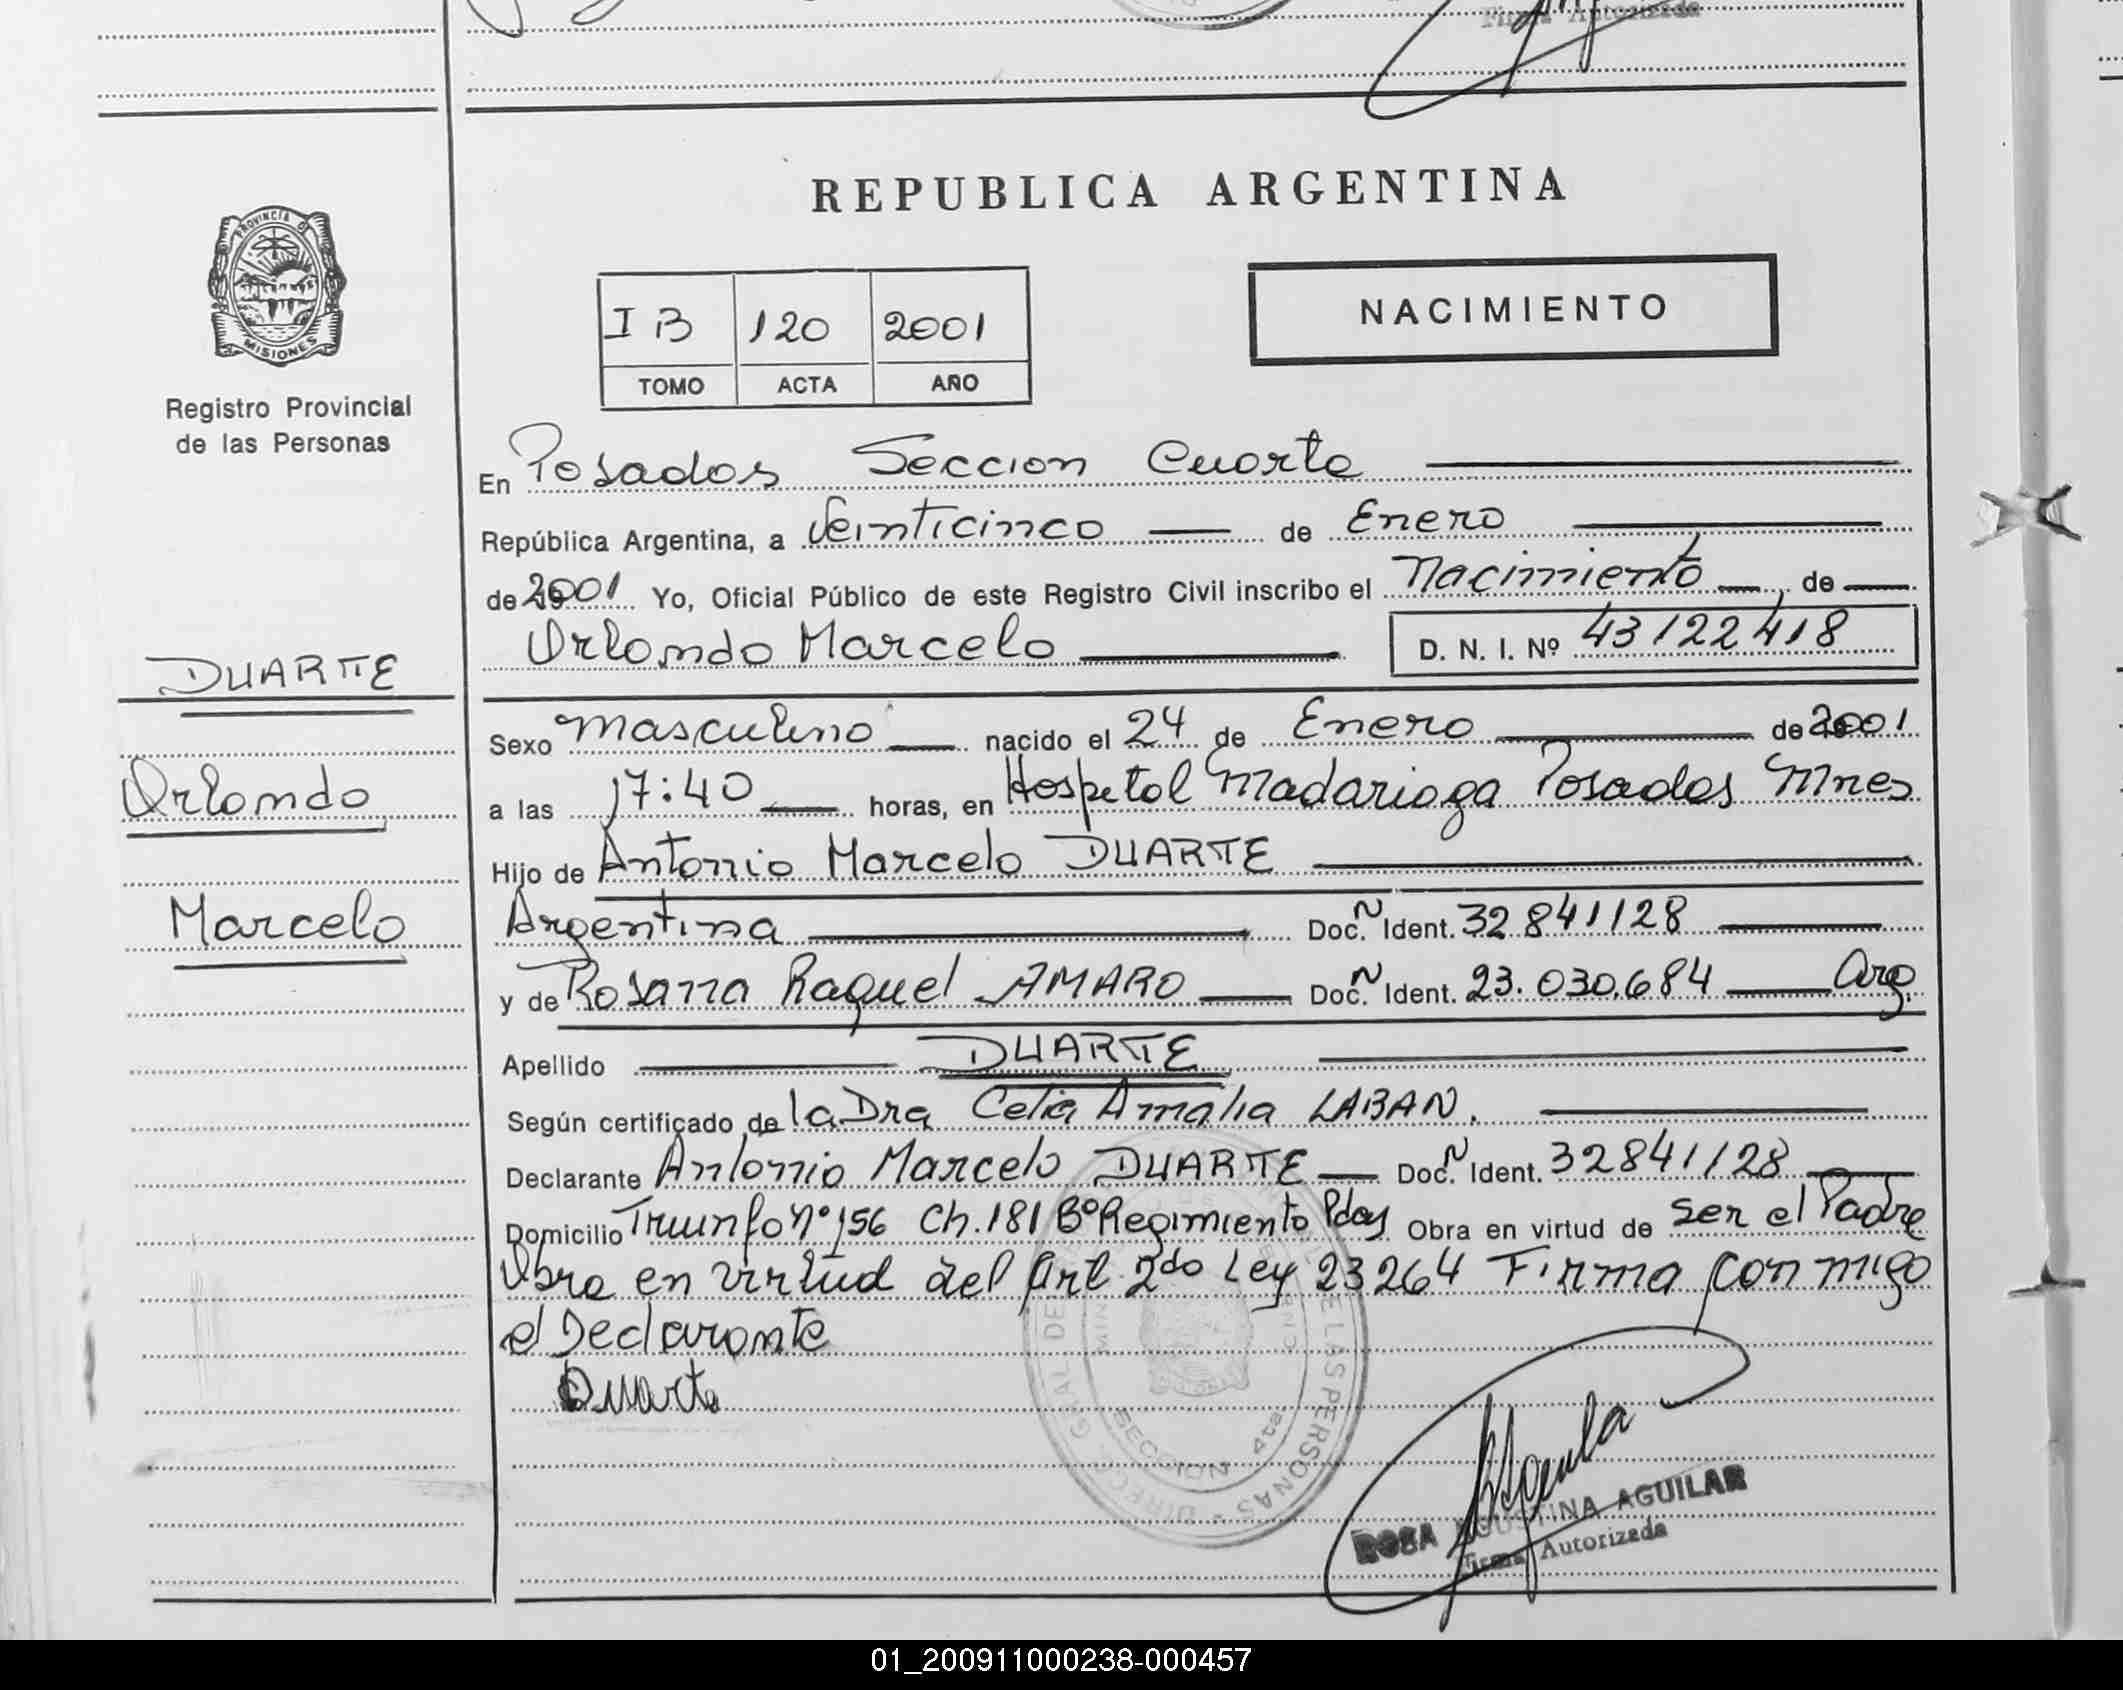 Firma Autorizada
REPUBLICA ARGENTINA
PROVINCIA DE
MISIONES
Registro Provincial
de las Personas
I B 120 2001
TOMO ACTA AÑO
NACIMIENTO
En Posadas Seccion Cuarta
República Argentina, a Veinticinco de Enero
de 2001 Yo, Oficial Público de este Registro Civil inscribo el Nacimiento de
Orlando Marcelo D. N. I. Nº 43122418
DUARTE
Orlando
Marcelo
Sexo Masculino nacido el 24 de Enero de 2001
a las 17:40 horas, en Hospital Madariaga Posadas Mnes
Hijo de Antonio Marcelo DUARTE
Argentina Doc. N Ident. 32841128
y de Rosana Raquel AMARO Doc. N Ident. 23.030.684 Arg.
Apellido DUARTE
Según certificado de la Dra Celia Amalia LABAN.
Declarante Antonio Marcelo DUARTE Doc. N Ident. 32841128
Domicilio Triunfo Nº 156 Ch. 181 Bº Regimiento Pdas Obra en virtud de ser el Padre
Obra en virtud del Art 2do Ley 23264 Firma conmigo
el Declarante
Duarte
SECCION 4ta
ROSA AGUSTINA AGUILAR
Firma Autorizada
01_200911000238-000457